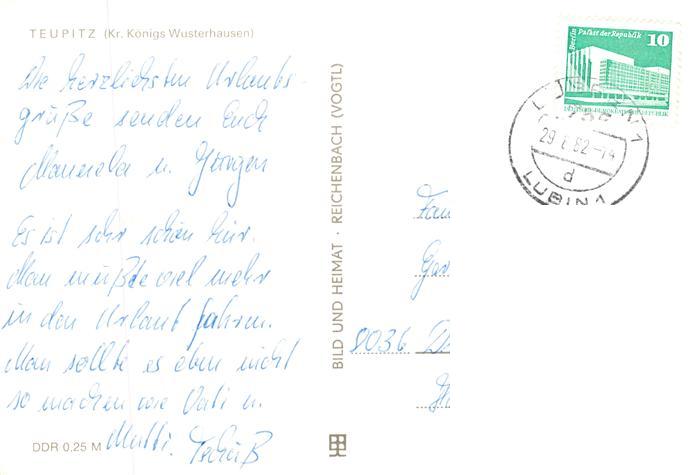 TEUPITZ (Kr. Königs Wusterhausen)
Die herzlichsten Urlaubs-
grüße senden Euch
Manuela u. Jürgen
Es ist sehr schön hier.
Man müßte viel mehr
in den Urlaub fahren.
Man sollte es eben nicht
so machen wie Vati u.
Mutti. Tschüß
DDR 0,25 M
BILD UND HEIMAT · REICHENBACH (VOGTL)
Berlin Palast der Republik
10
LÜBBEN 1
29
82-14
d
LUBIN 1
Fam
Gar
8036 D